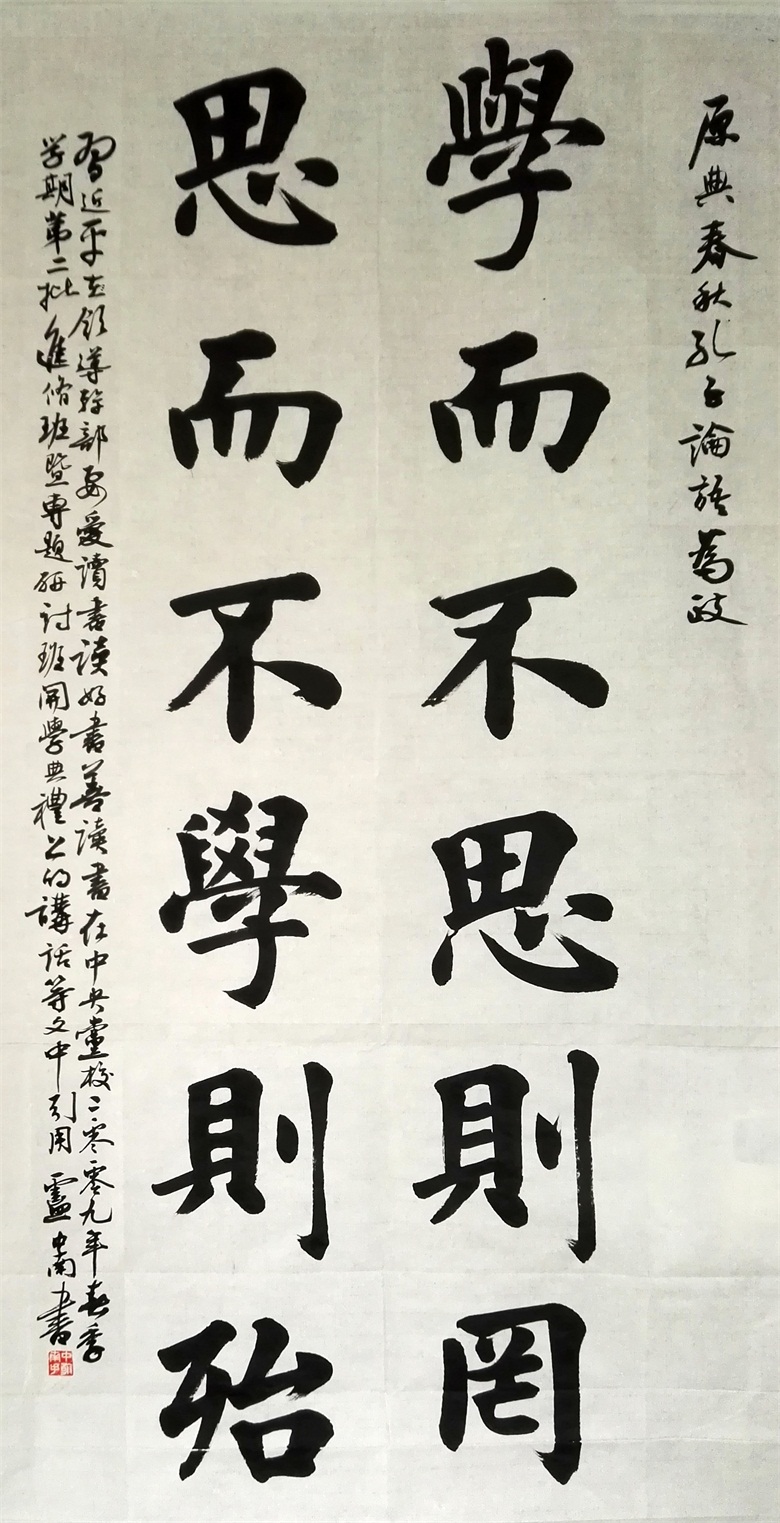 原典春秋孔子論語為政
學而不思則罔
思而不學則殆
習近平在領導幹部要愛讀書讀好書善讀書在中央黨校二零零九年春季
学期第二批進脩班暨専題研討班開學典禮上的講話等文中引用 盧中南書